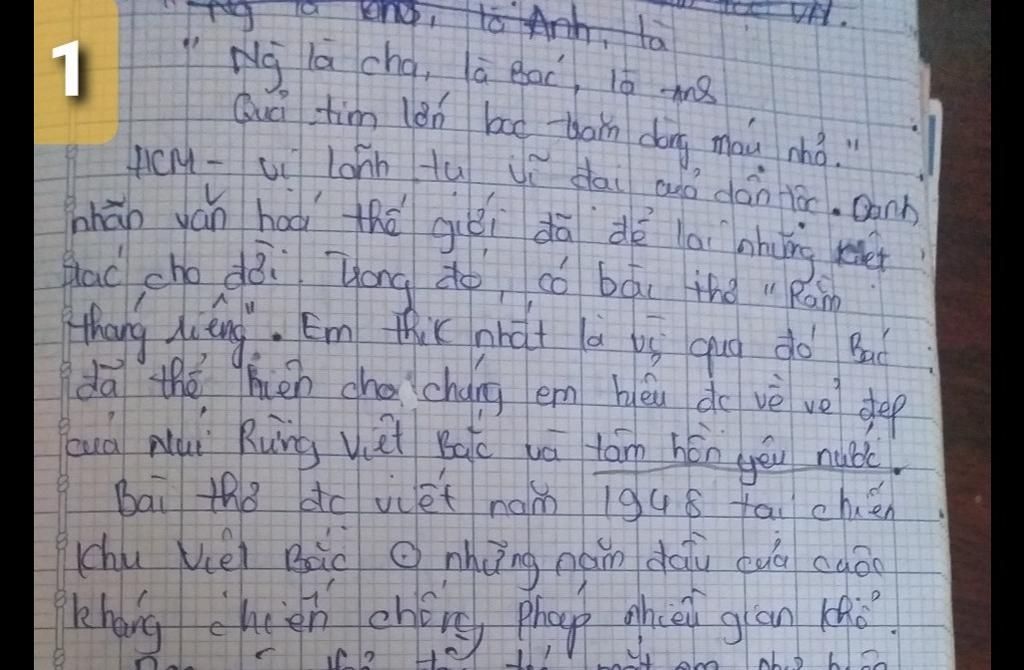 1
là Anh, là
VH.
" Ng là cha, là Bác, là Anh
Quả tim lớn bọc trăm dòng máu nhỏ."
HCM - vị lãnh tụ vĩ đại của dân tộc. Danh
nhân văn hoá thế giới đã để lại những kiệt
tác cho đời. Trong đó, có bài thơ "Rằm
tháng riêng". Em thik nhất là vì qua đó Bác
đã thể hiện cho chúng em hiểu đc về vẻ đẹp
của Núi Rừng Việt Bắc và tâm hồn yêu nước.
Bài thơ đc viết năm 1948 tại chiến
khu Việt Bắc ở những năm đầu của cuộc
kháng chiến chống Pháp nhiều gian khổ.